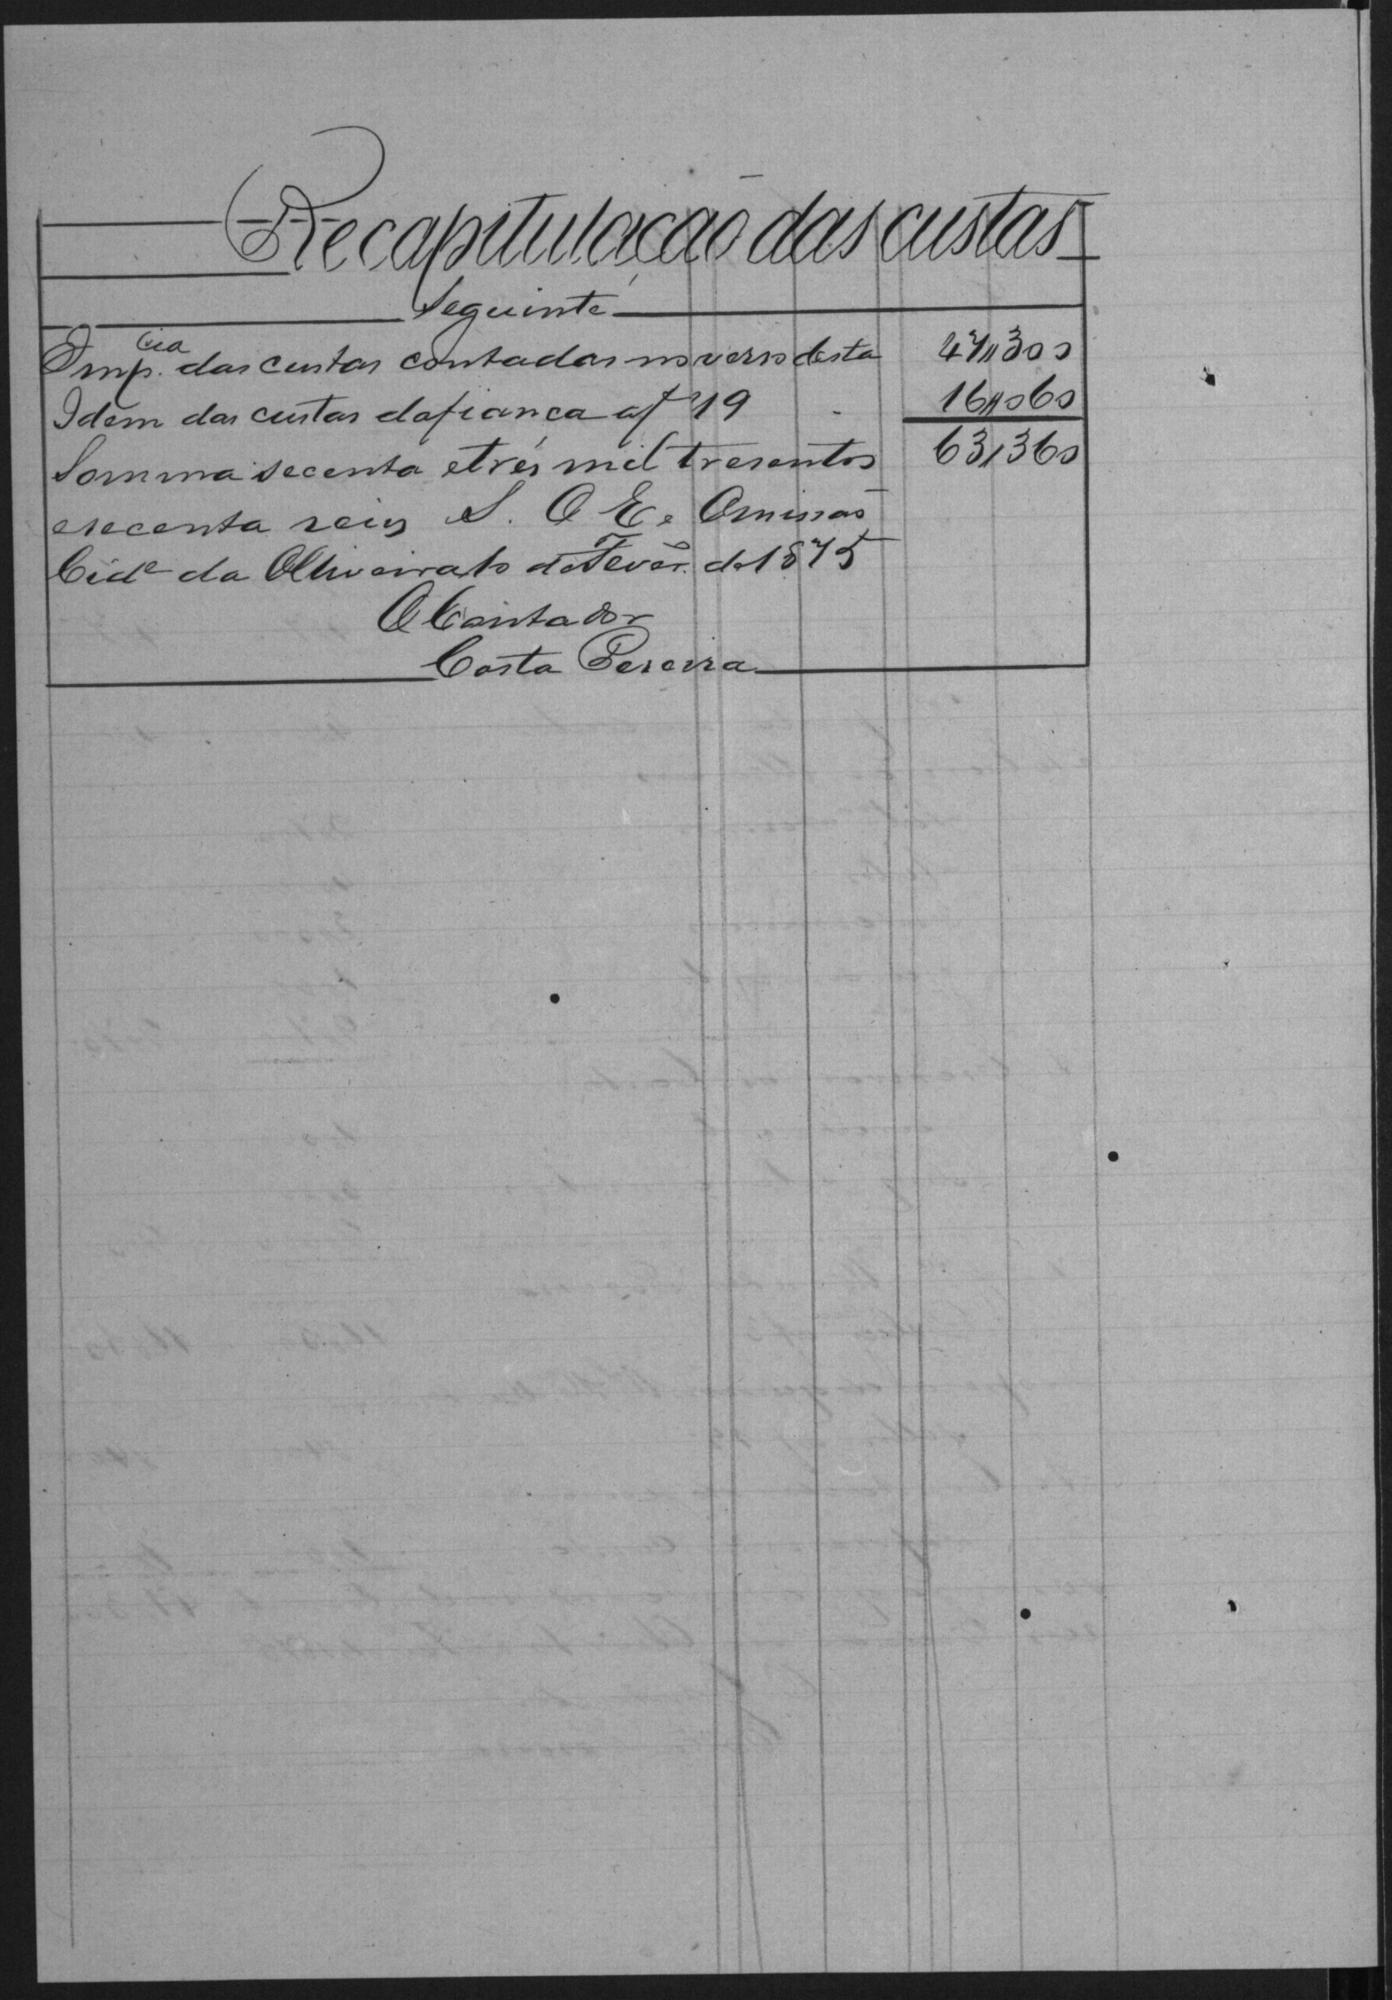 Recapitulação das custas
Seguinte
Imp.cia das custas contadas no verso desta 47,,300
Idem das custas dafianca af 19 16,,060
Somma secenta etrés mil tresentos 63,360
esecenta reis S. O E. Omissão
Cide da Oliveira de Fevº. de 1875
O Contador
Costa Pereira